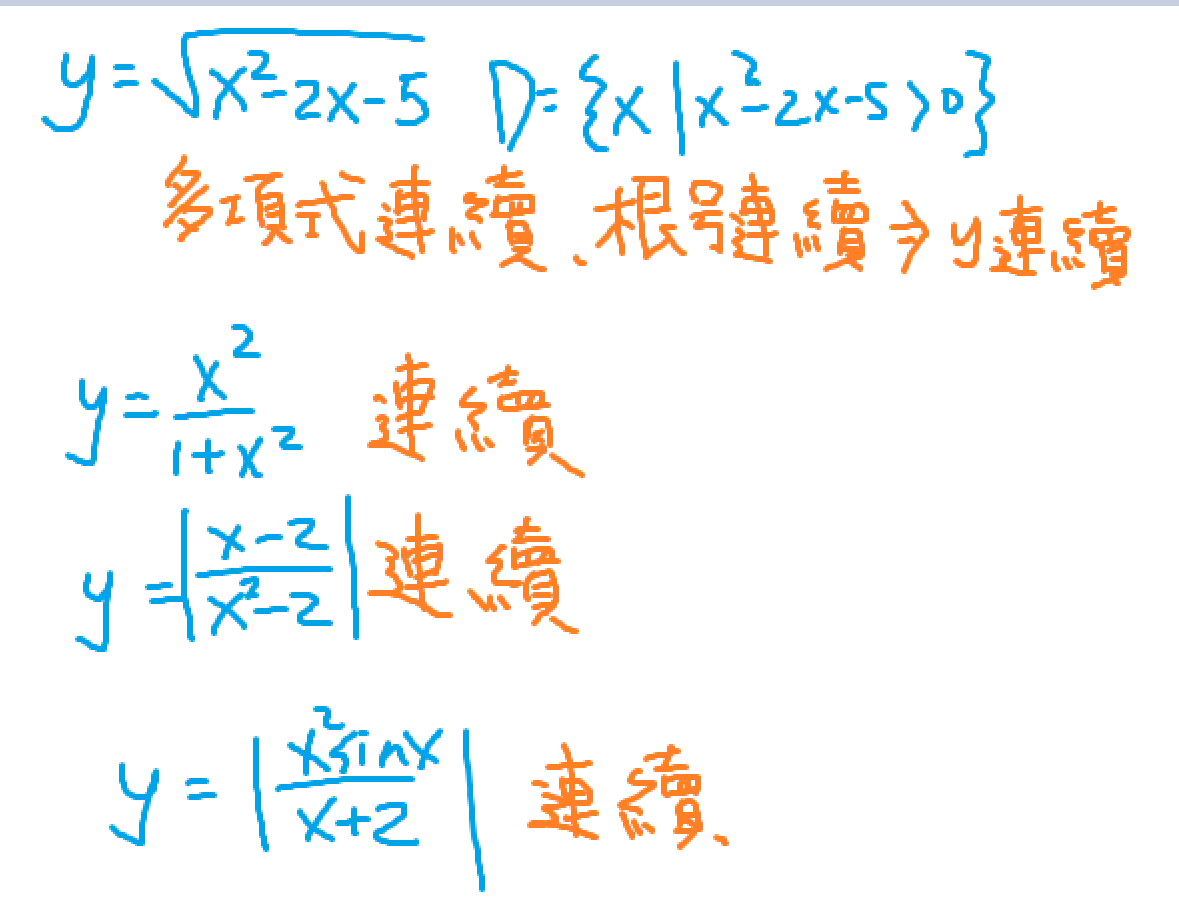 y=√(x²-2x-5) D={x|x²-2x-5>0}
多項式連續、根号連續⇒y連續
y=x²/(1+x²) 連續
y=|(x-2)/(x²-2)| 連續
y=|(x²sinx)/(x+2)| 連續、